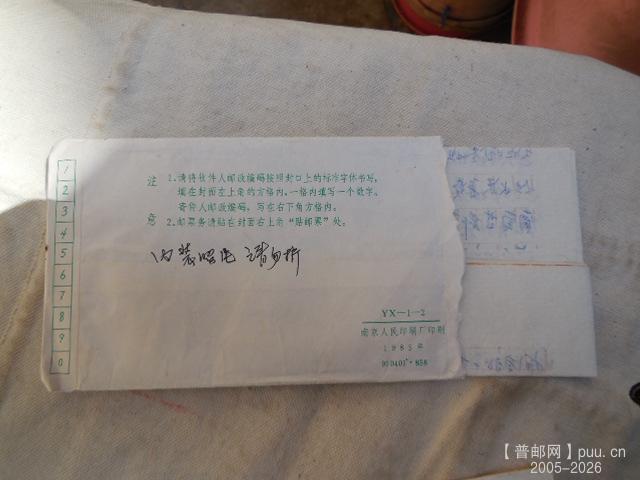 1
2
3
4
5
6
7
8
9
0
注 1.请将收件人邮政编码按照封口上的标准字体书写,
填在封面左上角的方格内。一格内填写一个数字。
寄件人邮政编码,写在右下角方格内。
意 2.邮票务请贴在封面右上角“贴邮票”处。
内装照片 请勿折
YX—1—2
南京人民印刷厂印刷
1985年
【普邮网】puu.cn
2005-2026